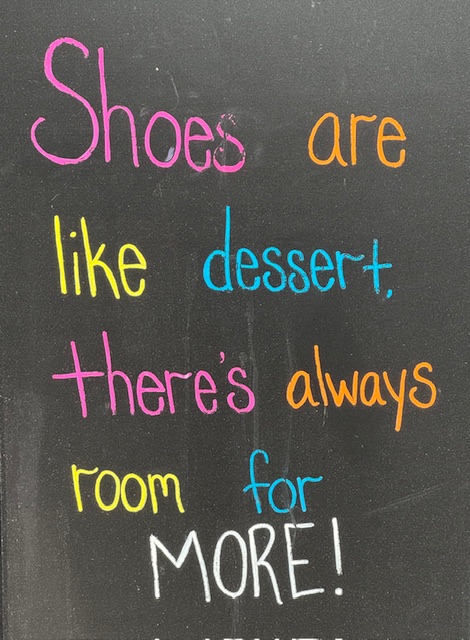 Shoes are
like dessert,
there's always
room for
MORE!